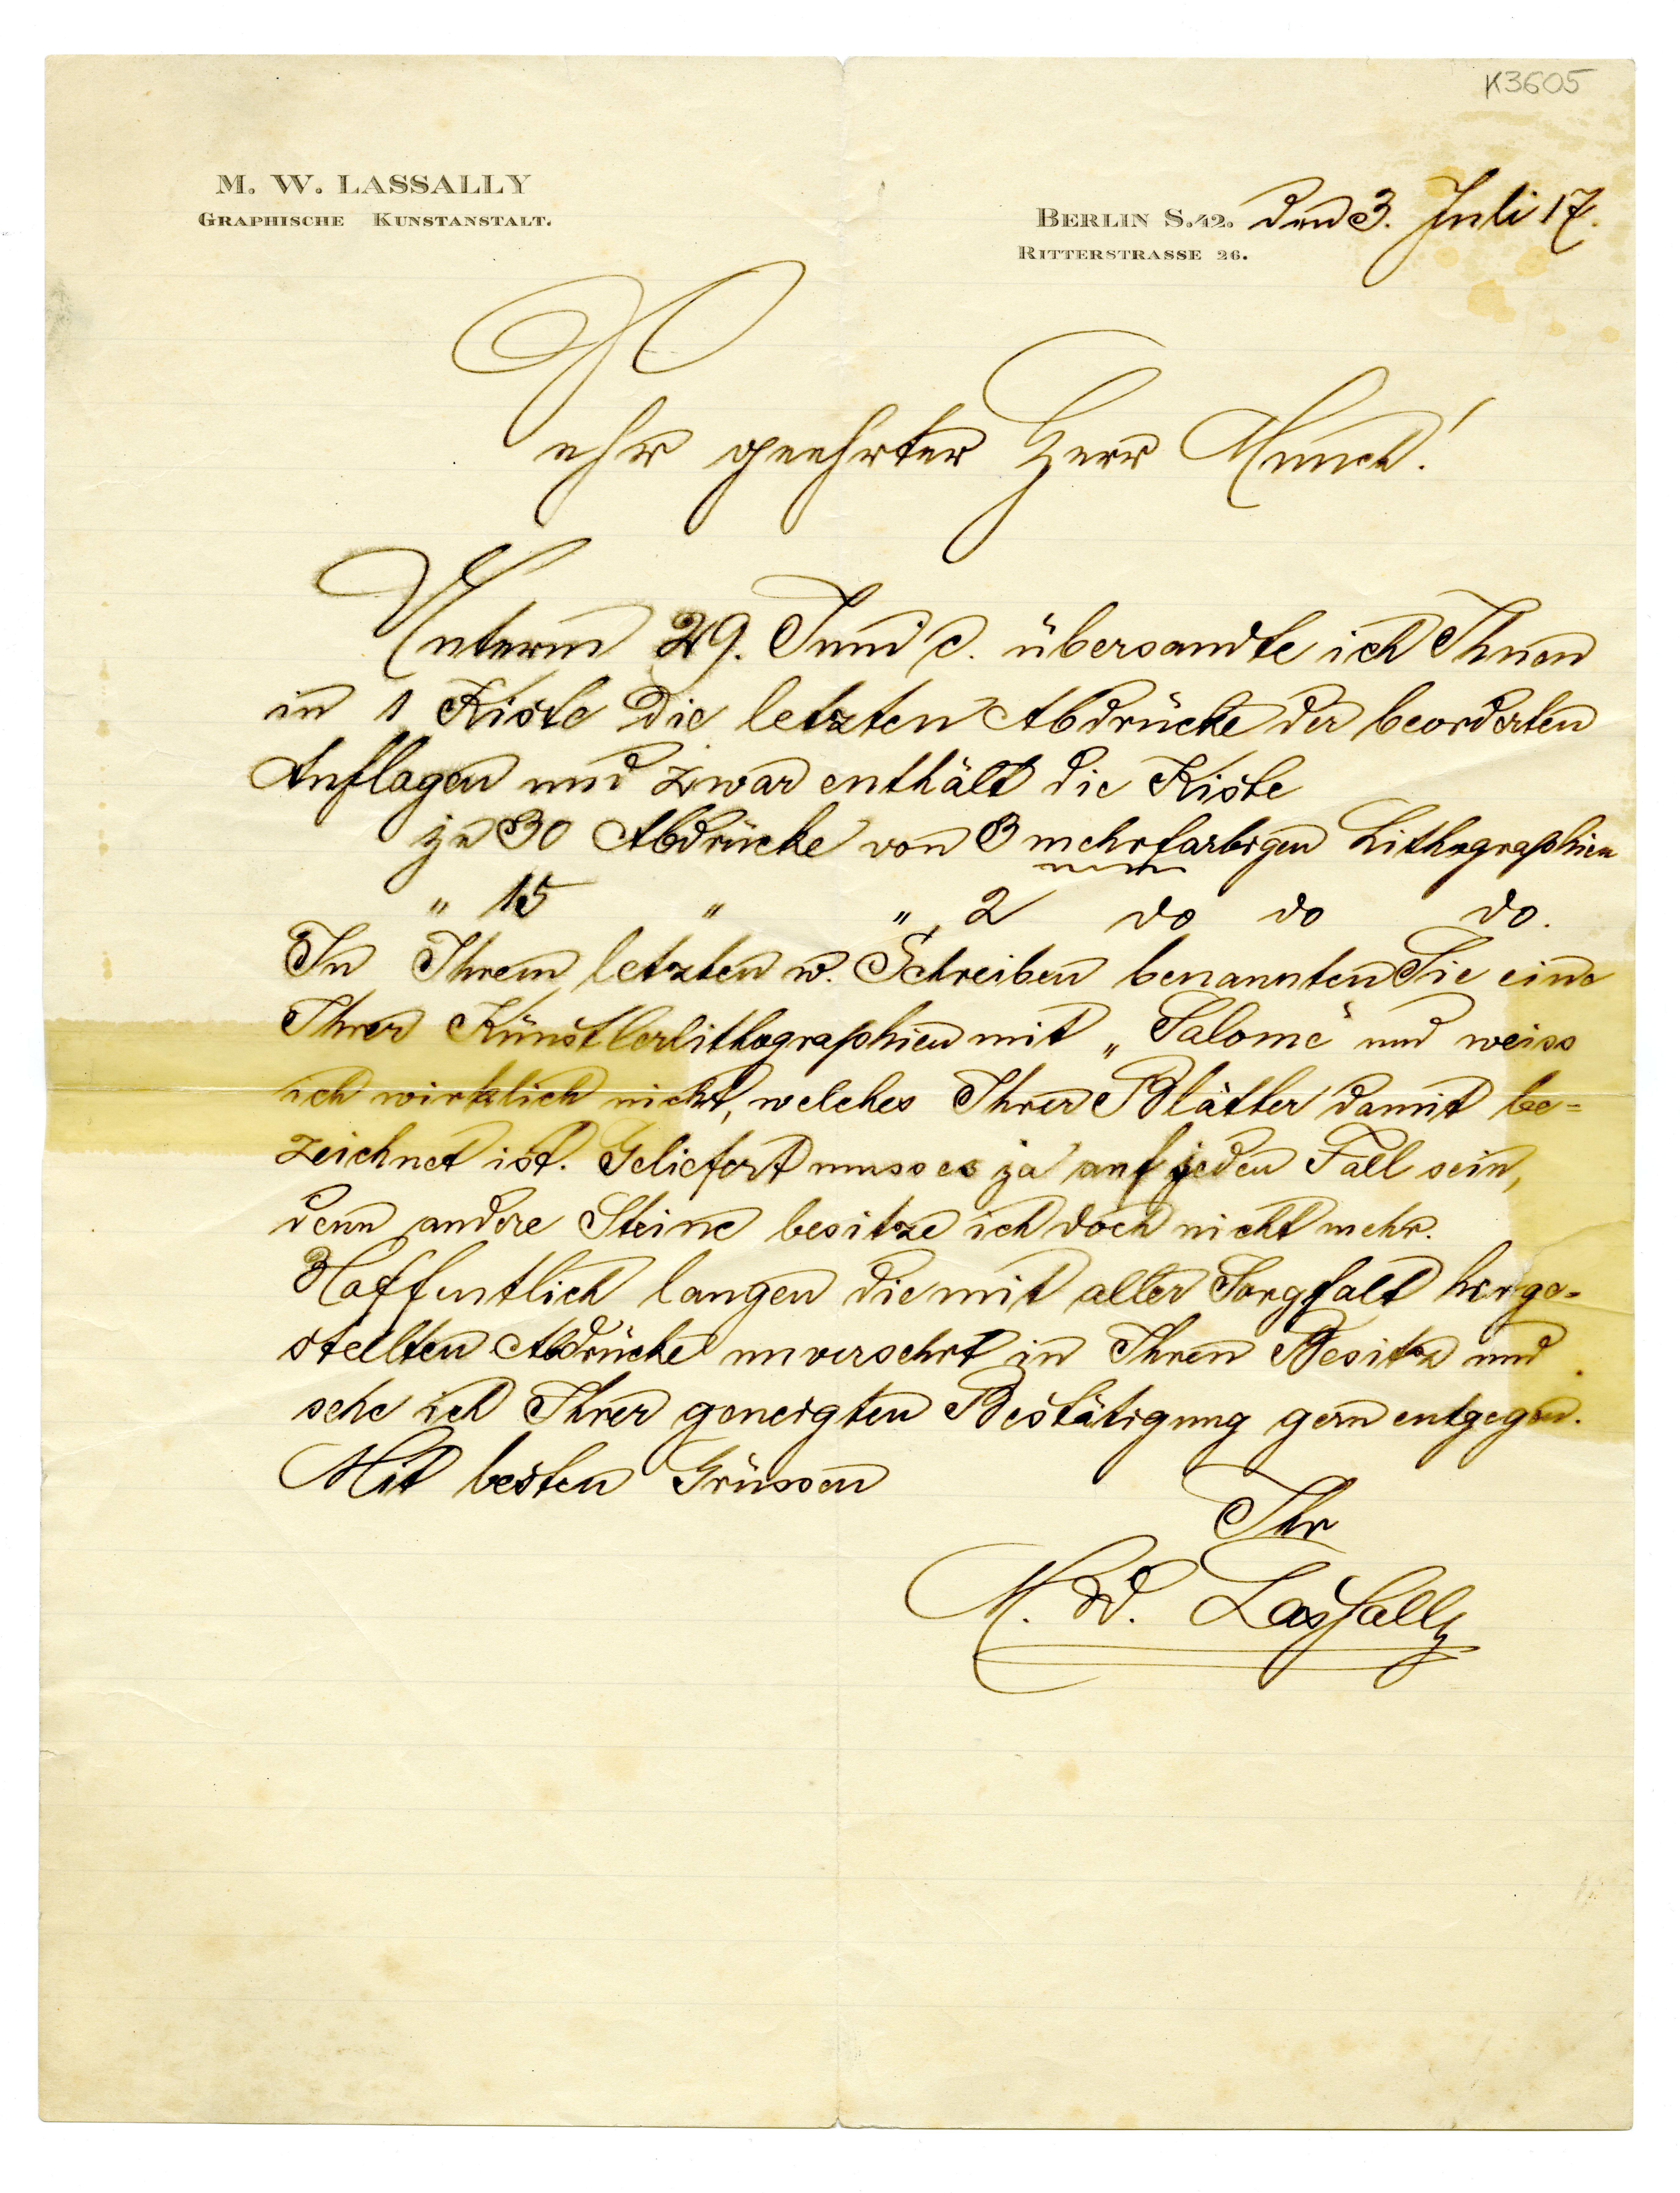 K3605
M. W. LASSALLY
GRAPHISCHE KUNSTANSTALT.
BERLIN S.42. den 3. Juli 17.
RITTERSTRASSE 26.
Sehr geehrter Herr Munch!
Unterm 29. Juni c. übersandte ich Ihnen
in 1 Kiste die letzten Abdrücke der beorderten
Auflagen und zwar enthält die Kiste
je 30 Abdrücke von 3 mehrfarbigen Lithographien
" 15 " " 2 do do do.
In Ihrem letzten w. Schreiben benannten Sie eine
Ihrer Künstlerlithographien mit „Salome“ und weiss
ich wirklich nicht, welches Ihrer Blätter damit be=
zeichnet ist. Geliefert muss es ja auf jeden Fall sein,
denn andere Steine besitze ich doch nicht mehr.
Hoffentlich langen die mit aller Sorgfalt herge=
stellten Abdrücke unversehrt in Ihren Besitz und
sehe ich Ihrer geneigten Bestätigung gern entgegen.
Mit besten Grüssen
Ihr
M. W. Lassally